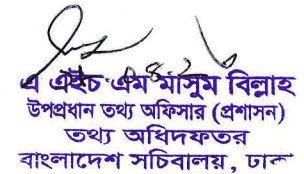 এ এইচ এম মাসুম বিল্লাহ
উপপ্রধান তথ্য অফিসার (প্রশাসন)
তথ্য অধিদফতর
বাংলাদেশ সচিবালয়, ঢাকা